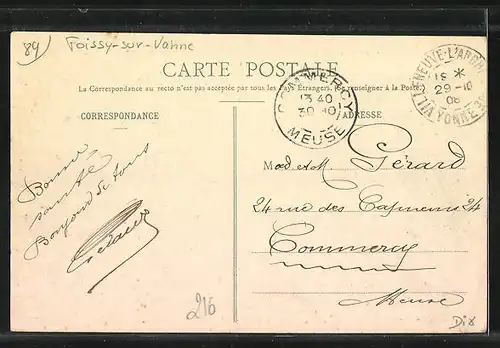 89 Foissy-sur-Vanne
CARTE POSTALE
La Correspondance au recto n'est pas acceptée par tous les Pays Étrangers. (Se renseigner à la Poste.)
CORRESPONDANCE
ADRESSE
COMMERCY
13 40
30 10
MEUSE
VILLENEUVE-L'ARCH
18 *
29-10
08
YONNE
Bonne
santé
Bonjour de tous
Gérard
24 rue des Capucins 24
Commercy
Meuse
216
Dix